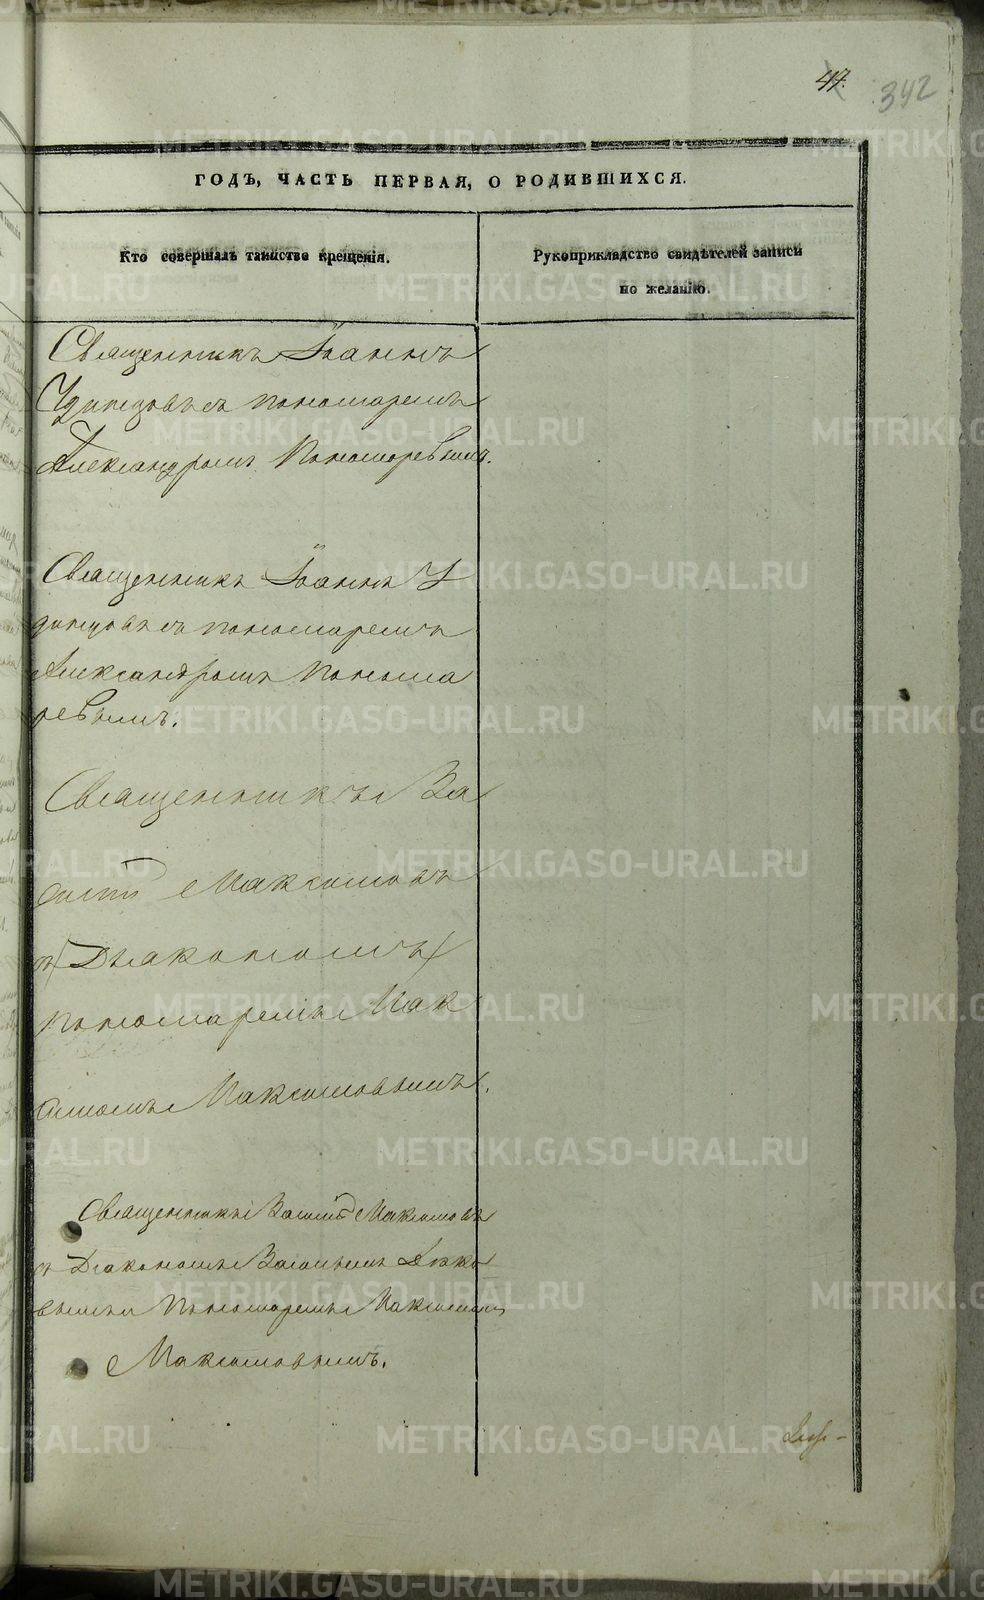 47.
342
ГОДЪ, ЧАСТЬ ПЕРВАЯ, О РОДИВШИХСЯ.
Кто совершалъ таинство крещенія.
Рукоприкладство свидѣтелей записи
по желанію.
Священникъ Іоаннъ
Удинцовъ съ пономаремъ
Александромъ Пономаревымъ.
Священникъ Іоаннъ У
динцовъ съ пономаремъ
Александромъ Понома
ревымъ.
Священникъ Ва
силій Максимовъ
съ Діакономъ
пономаремъ Мак
симомъ Максимовымъ.
Священникъ Василій Максимовъ
съ Діакономъ Василіемъ
вымъ и Пономаремъ Максимомъ
Максимовымъ.
METRIKI.GASO-URAL.RU